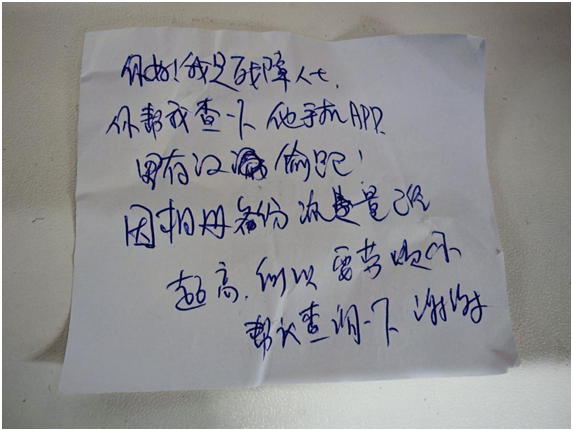 你好!我是残障人士,
你帮我查一下他手机APP
里有没偷跑!
因相册备份流量已
超高,所以要劳烦你
帮我查询一下 谢谢